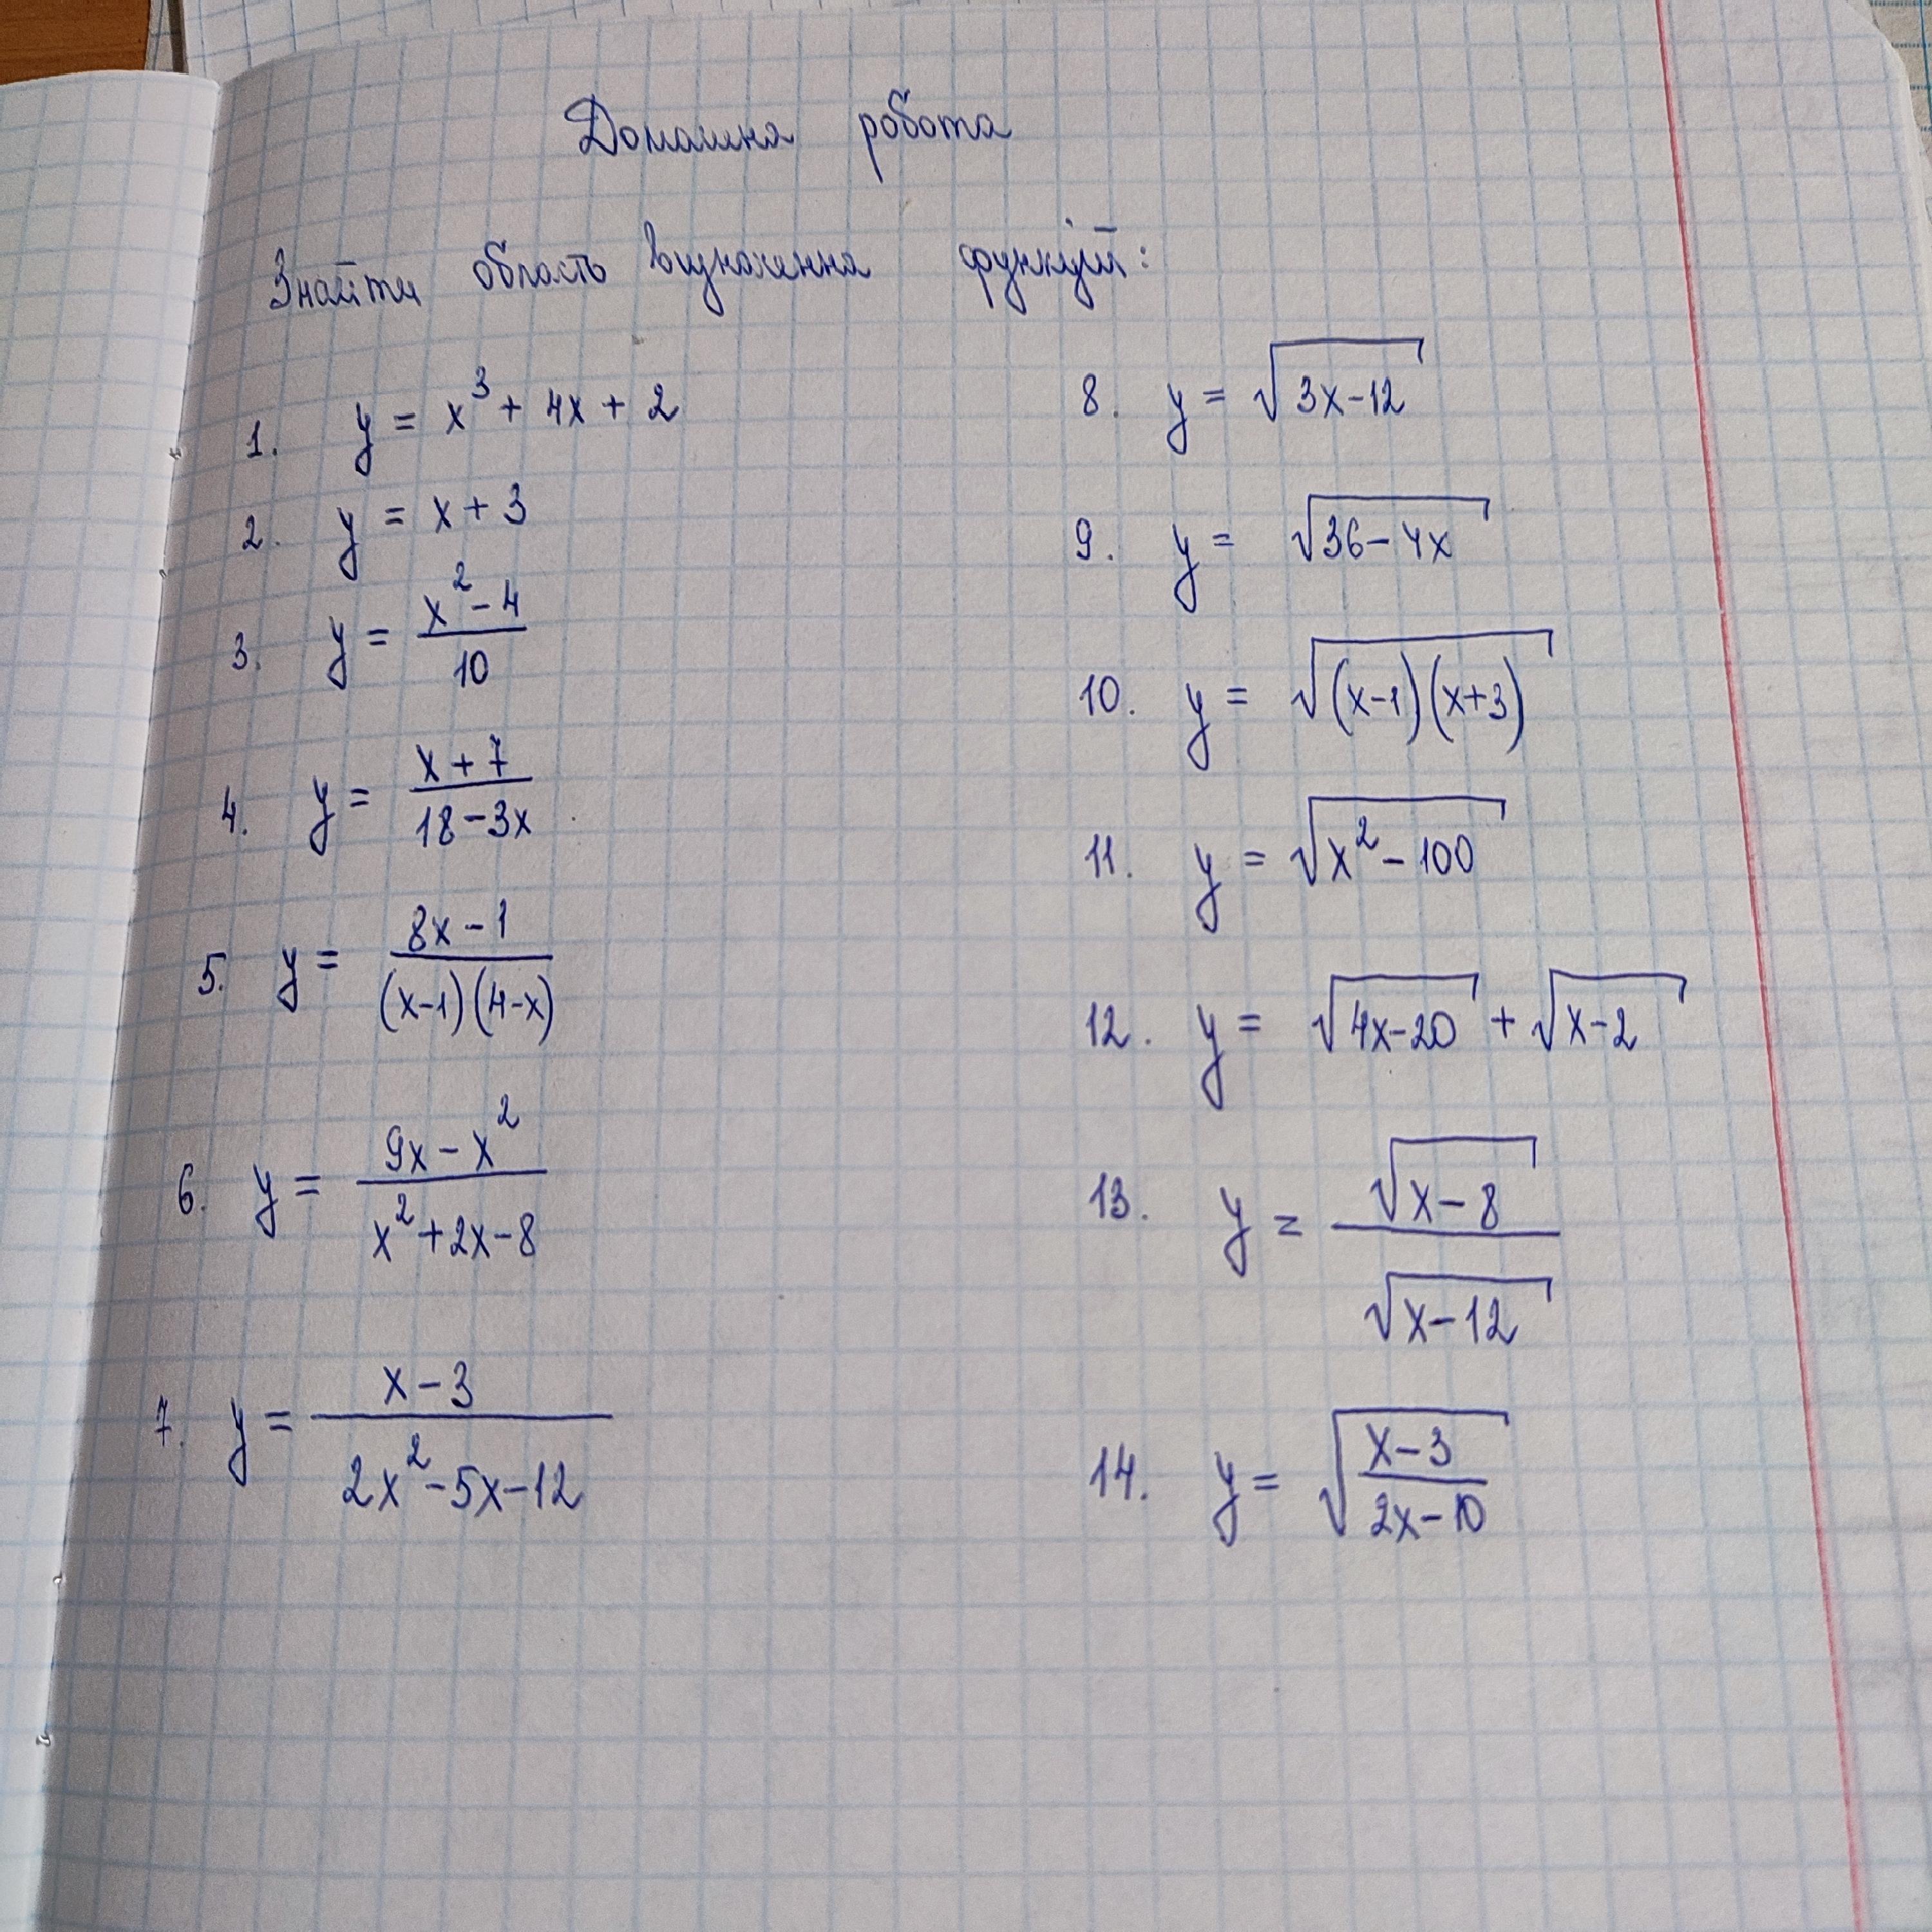 Домашня робота
Знайти область визначення функцій:
1. y = x³ + 4x + 2
2. y = x + 3
3. y = (x² - 4)/10
4. y = (x + 7)/(18 - 3x)
5. y = (8x - 1)/((x-1)(4-x))
6. y = (9x - x²)/(x² + 2x - 8)
7. y = (x - 3)/(2x² - 5x - 12)
8. y = √(3x - 12)
9. y = √(36 - 4x)
10. y = √((x-1)(x+3))
11. y = √(x² - 100)
12. y = √(4x - 20) + √(x - 2)
13. y = √(x - 8)/√(x - 12)
14. y = √((x - 3)/(2x - 10))